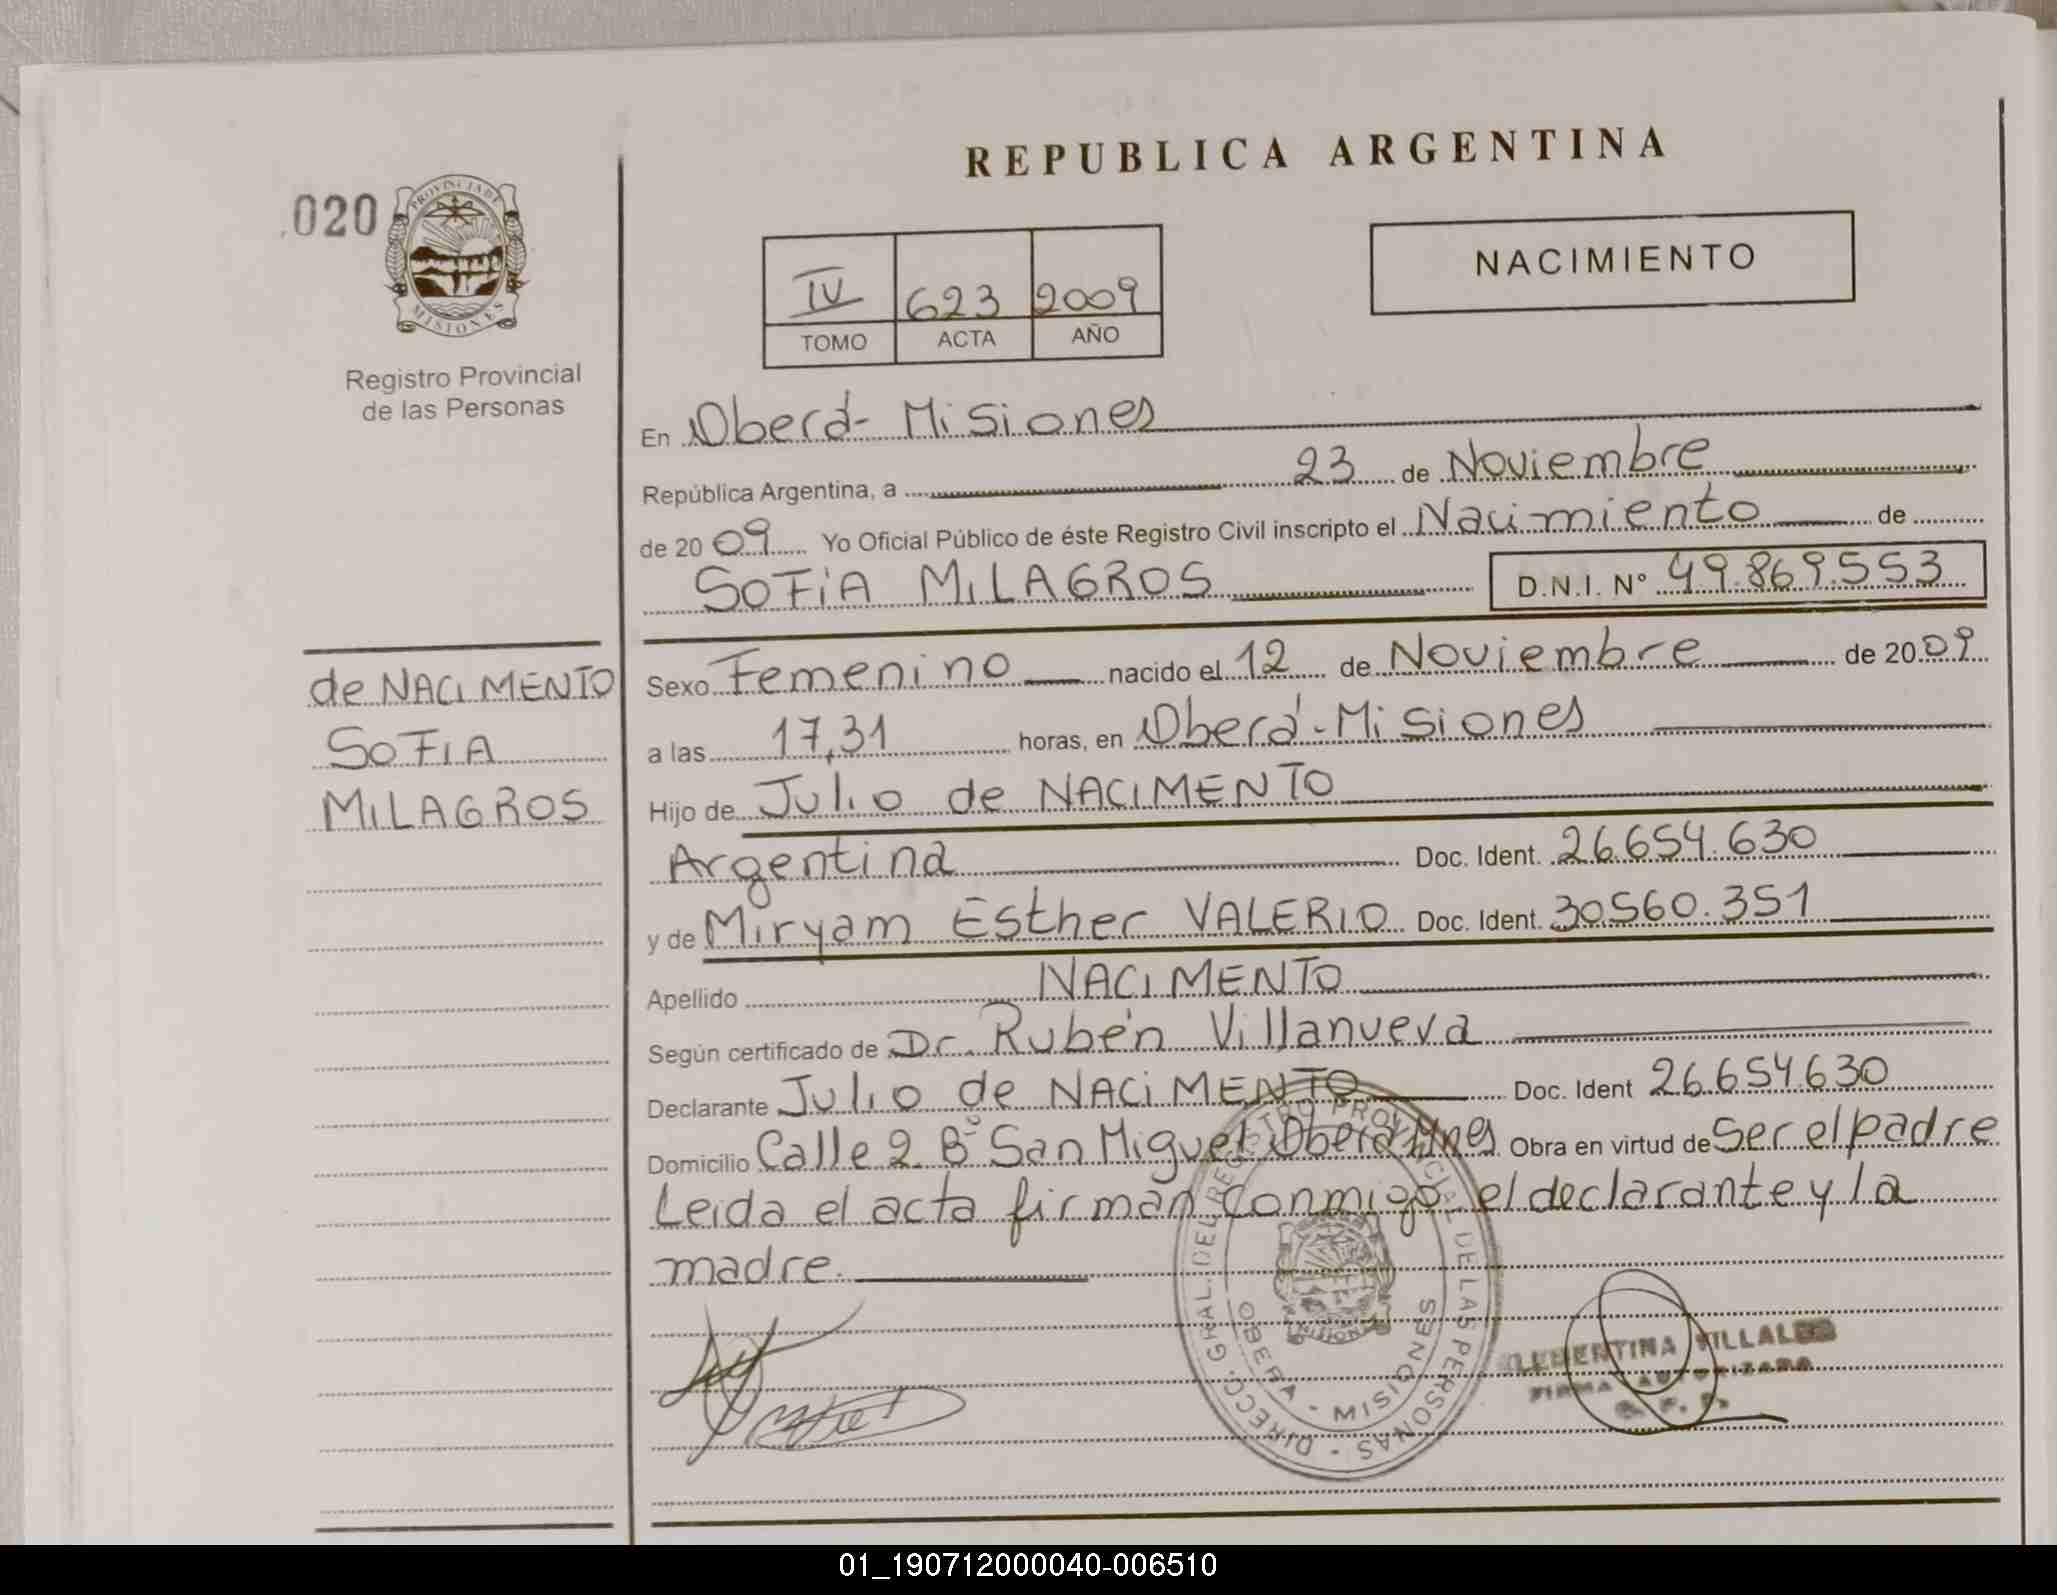 REPUBLICA ARGENTINA
020
PROVINCIA DE
MISIONES
Registro Provincial
de las Personas
IV 623 2009
TOMO ACTA AÑO
NACIMIENTO
En Oberá - Misiones
República Argentina, a 23 de Noviembre
de 2009 Yo Oficial Público de éste Registro Civil inscripto el Nacimiento de
SOFIA MILAGROS D.N.I. N° 49.869.553
de NACIMENTO
SOFIA
MILAGROS
Sexo Femenino nacido el 12 de Noviembre de 2009
a las 17,31 horas, en Oberá - Misiones
Hijo de Julio de NACIMENTO
Argentina Doc. Ident. 26.654.630
y de Miryam Esther VALERIO Doc. Ident. 30560.351
Apellido NACIMENTO
Según certificado de Dr. Rubén Villanueva
Declarante Julio de NACIMENTO Doc. Ident 26.654.630
Domicilio Calle 2 B° San Miguel Oberá Mnes Obra en virtud de ser el padre
Leida el acta firman conmigo el declarante y la
madre.
DIRECC. GRAL. DEL REGISTRO PROVINCIAL DE LAS PERSONAS
OBERA - MISIONES
MISIONES
CLEMENTINA VILLALBA
FIRMA AUTORIZADA
01_190712000040-006510